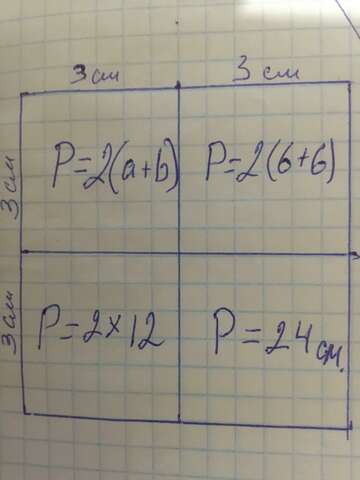 3 см 3 см
3 см
P=2(a+b) P=2(6+6)
3 см
P=2×12 P=24 см.